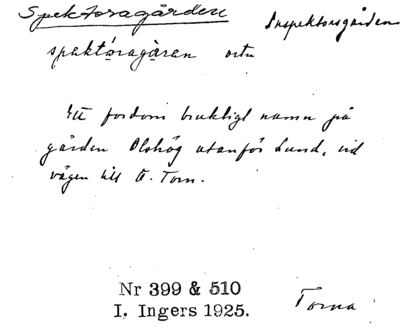 Spektoragården Inspektorsgården
spaktóragàran ortn
Ett fordom brukligt namn på
gården Olshög utanför Lund, vid
vägen till Ö. Torn.
Nr 399 & 510
I. Ingers 1925. Torna